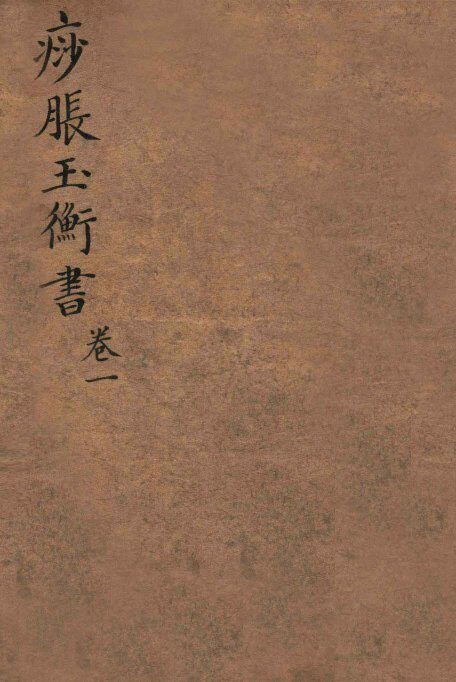 痧脹玉衡書
卷一